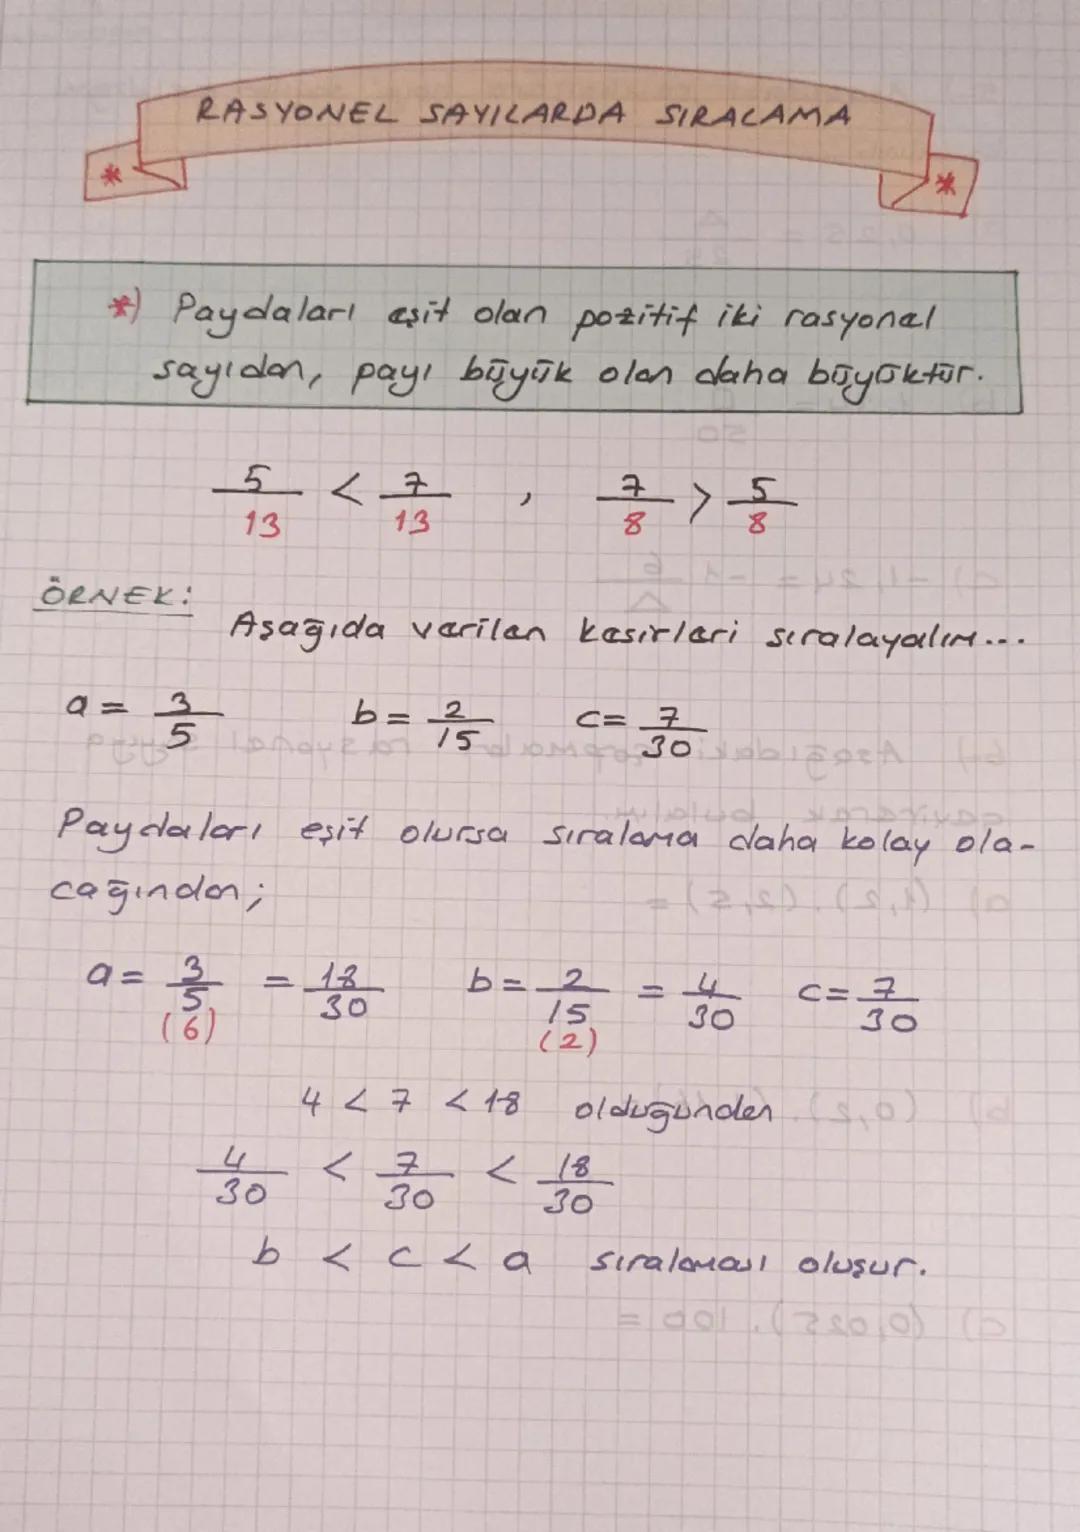 RASYONEL SAYILARDA SIRALAMA
*) Paydaları eşit olan pozitif iki rasyonel
sayıdan, payı büyük olan daha büyüktür.
5/13 < 7/13 , 7/8 > 5/8
ÖRNEK:
Aşağıda verilen kesirleri sıralayalım...
a = 3/5 b = 2/15 c = 7/30
Paydaları eşit olursa sıralama daha kolay ola-
cağından;
a = 3/5 = 18/30 b = 2/15 = 4/30 c = 7/30
(6) (2)
4 < 7 < 18 olduğundan
4/30 < 7/30 < 18/30
b < c < a sıralaması oluşur.